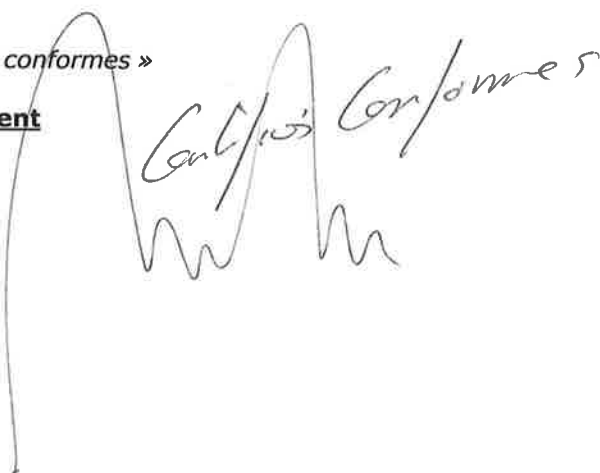 conformes »
ent
Certifiés Conformes